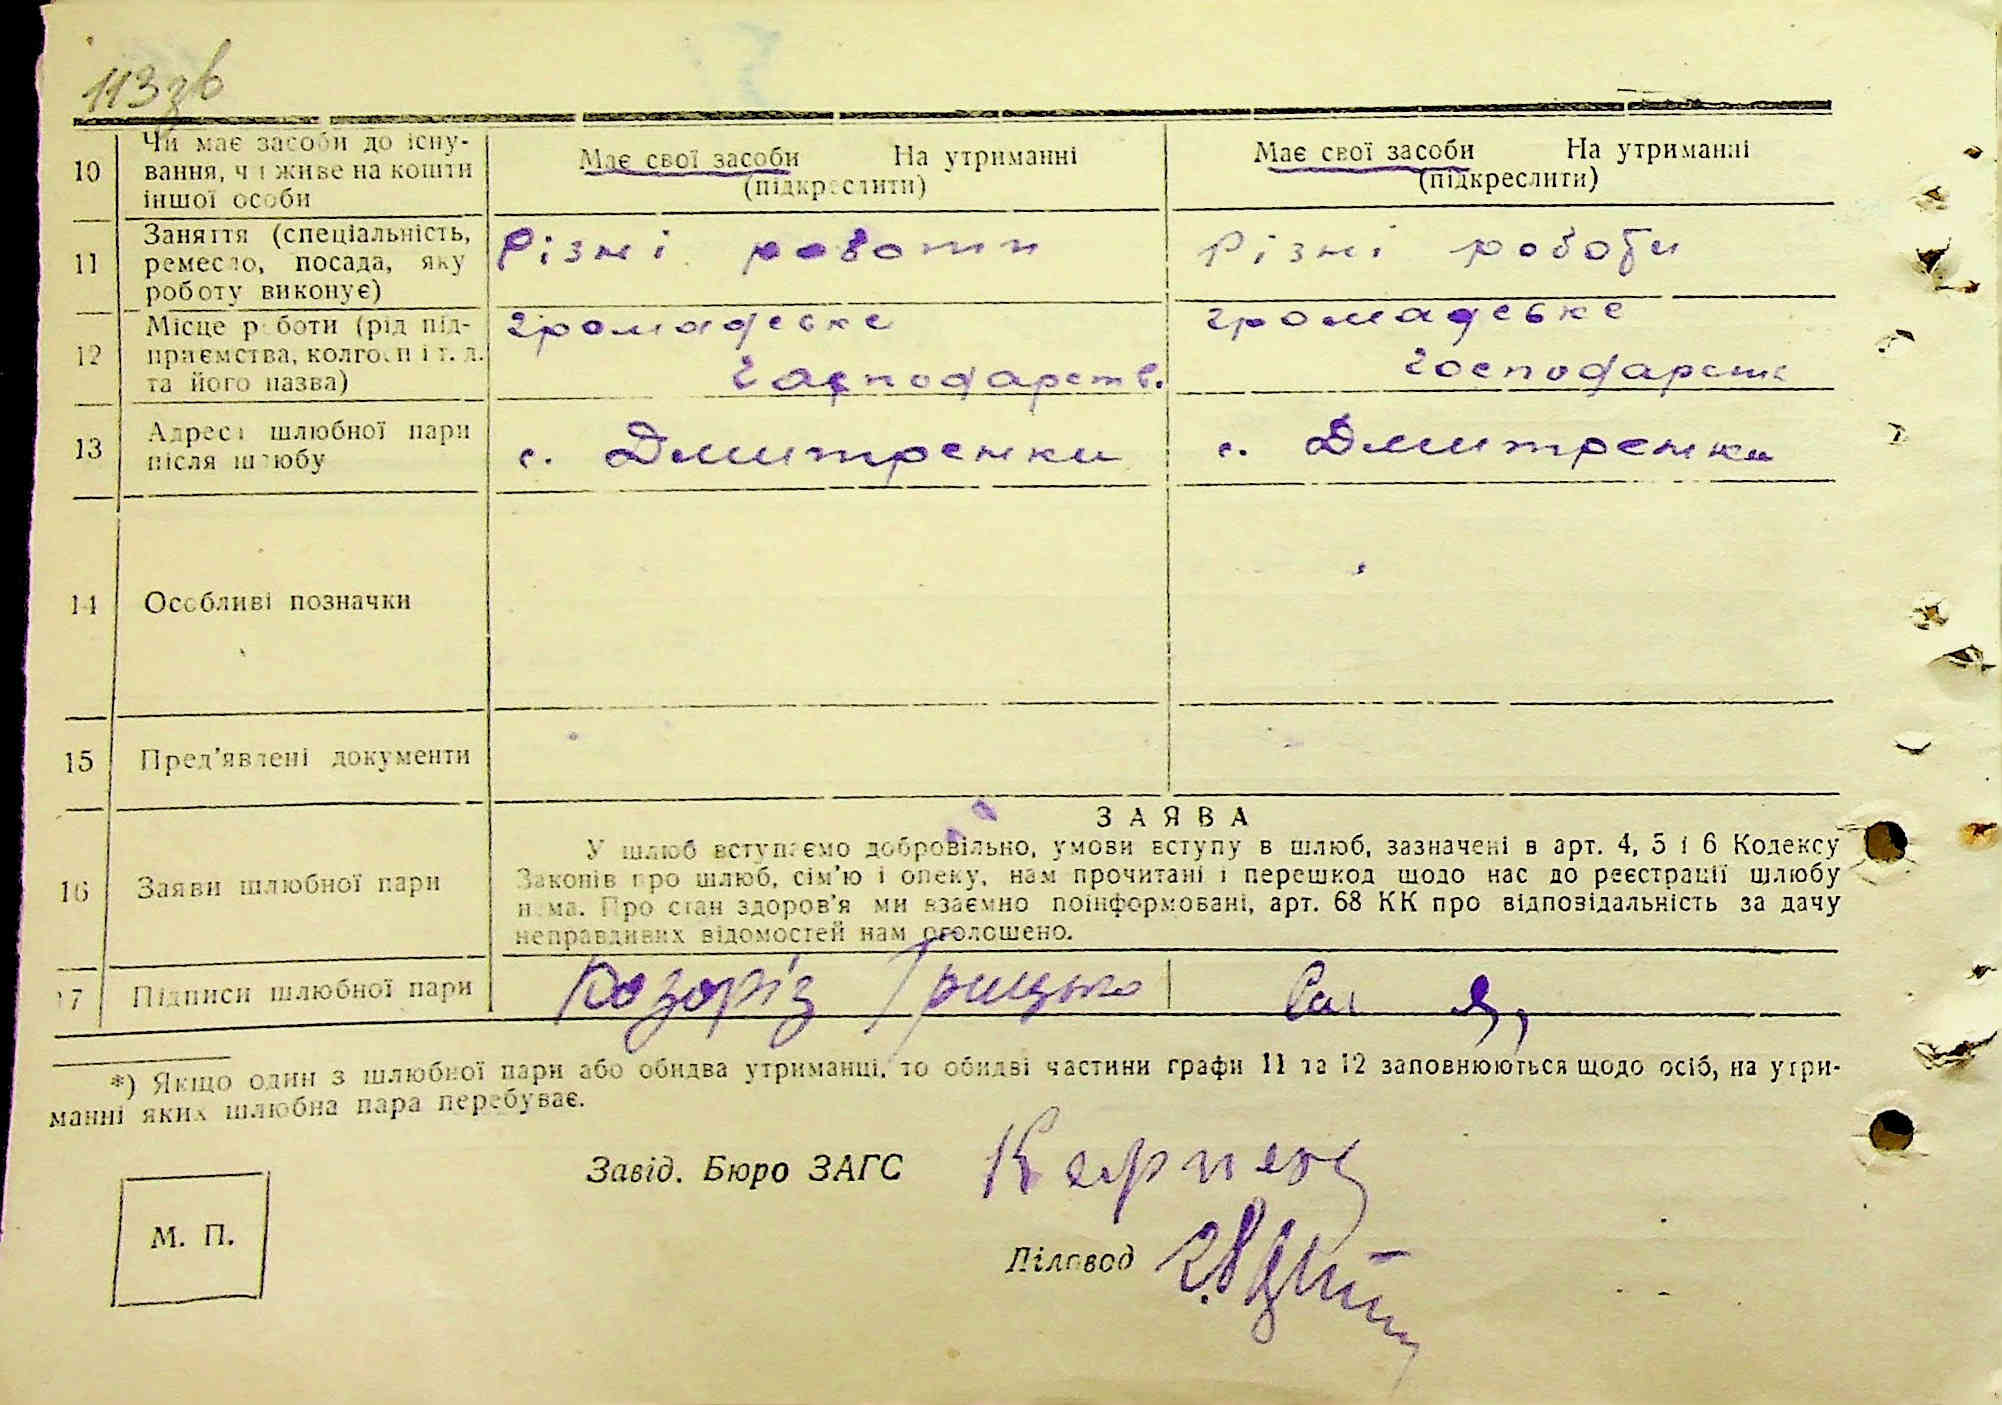 113 зв
10
Чи має засоби до існу-
вання, чи живе на кошти
іншої особи
Має свої засоби На утриманні
(підкреслити)
Має свої засоби На утриманні
(підкреслити)
11
Заняття (спеціальність,
ремесло, посада, яку
роботу виконує)
Різні роботи
Різні роботи
12
Місце роботи (рід під-
приємства, колгосп і т. д.
та його назва)
громадське
господарств.
громадське
господарств
13
Адреса шлюбної пари
після шлюбу
с. Дмитренки
с. Дмитренки
14
Особливі позначки
15
Пред'явлені документи
16
Заяви шлюбної пари
ЗАЯВА
У шлюб вступаємо добровільно, умови вступу в шлюб, зазначені в арт. 4, 5 і 6 Кодексу
Законів про шлюб, сім'ю і опеку, нам прочитані і перешкод щодо нас до реєстрації шлюбу
нема. Про стан здоров'я ми взаємно поінформовані, арт. 68 КК про відповідальність за дачу
неправдивих відомостей нам оголошено.
17
Підписи шлюбної пари
Козоріз Грицько
*) Якщо один з шлюбної пари або обидва утриманці, то обидві частини графи 11 та 12 заповнюються щодо осіб, на утри-
манні яких шлюбна пара перебуває.
Завід. Бюро ЗАГС
Діловод
М. П.